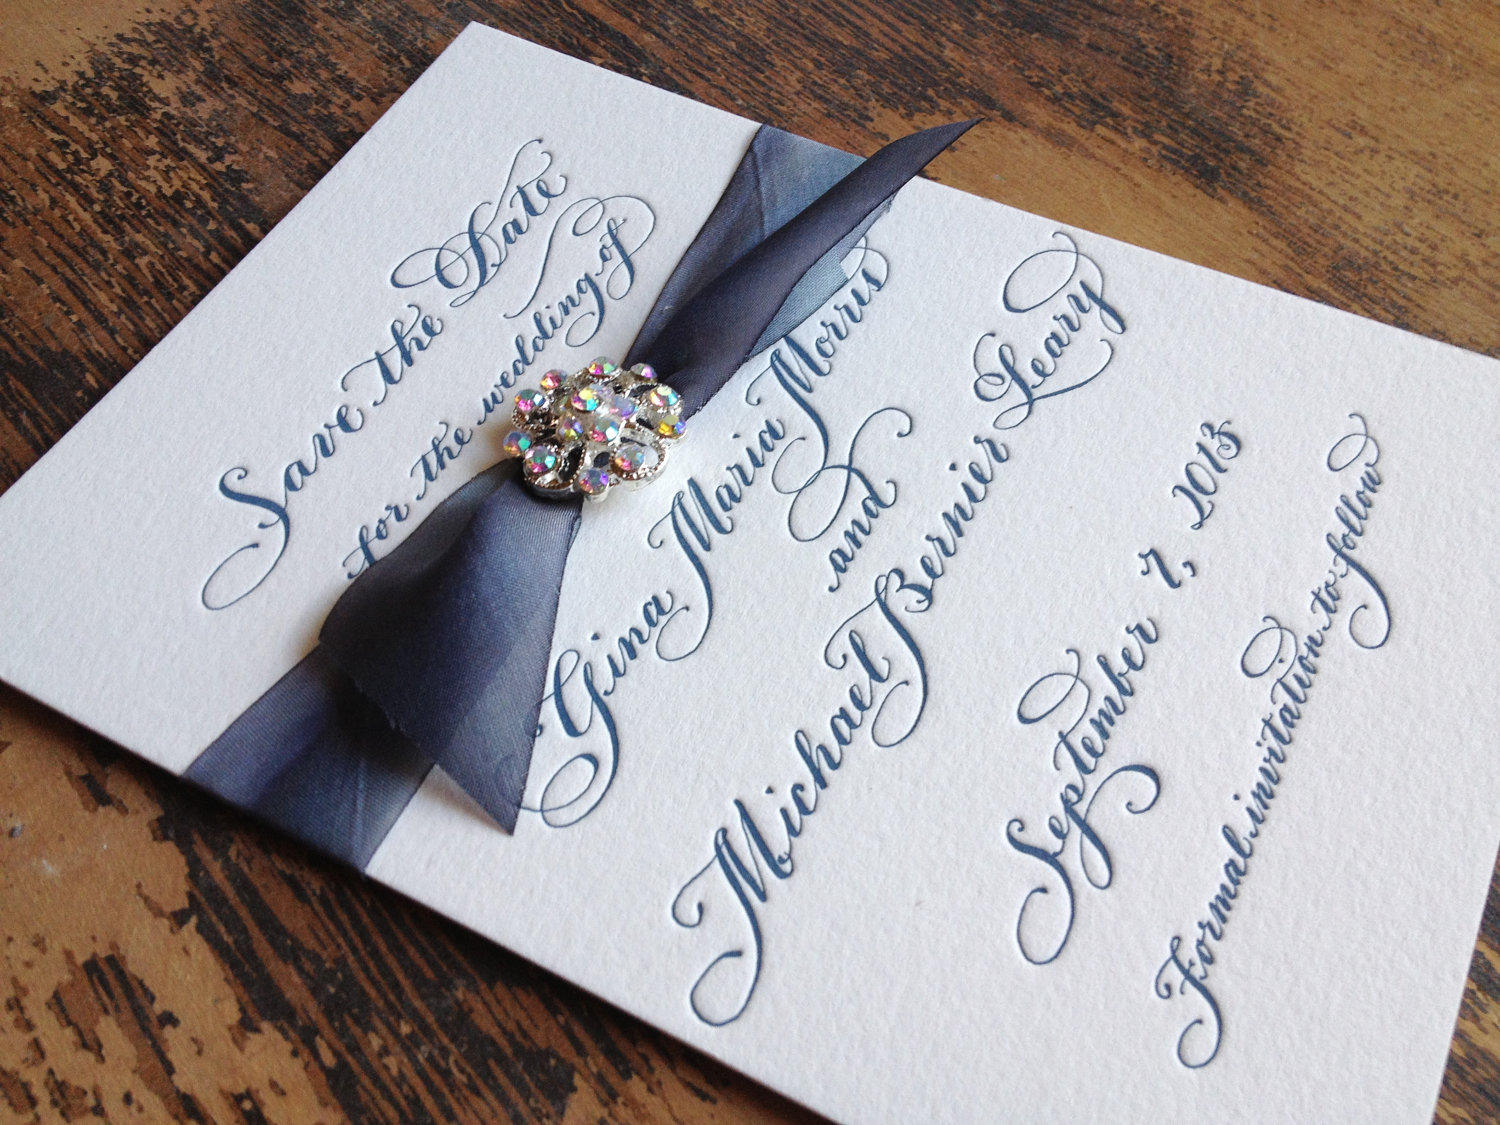 Save the Date
for the wedding of
Gina Maria Morris
and
Michael Bernier Leary
September 7, 2013
Formal invitation to follow